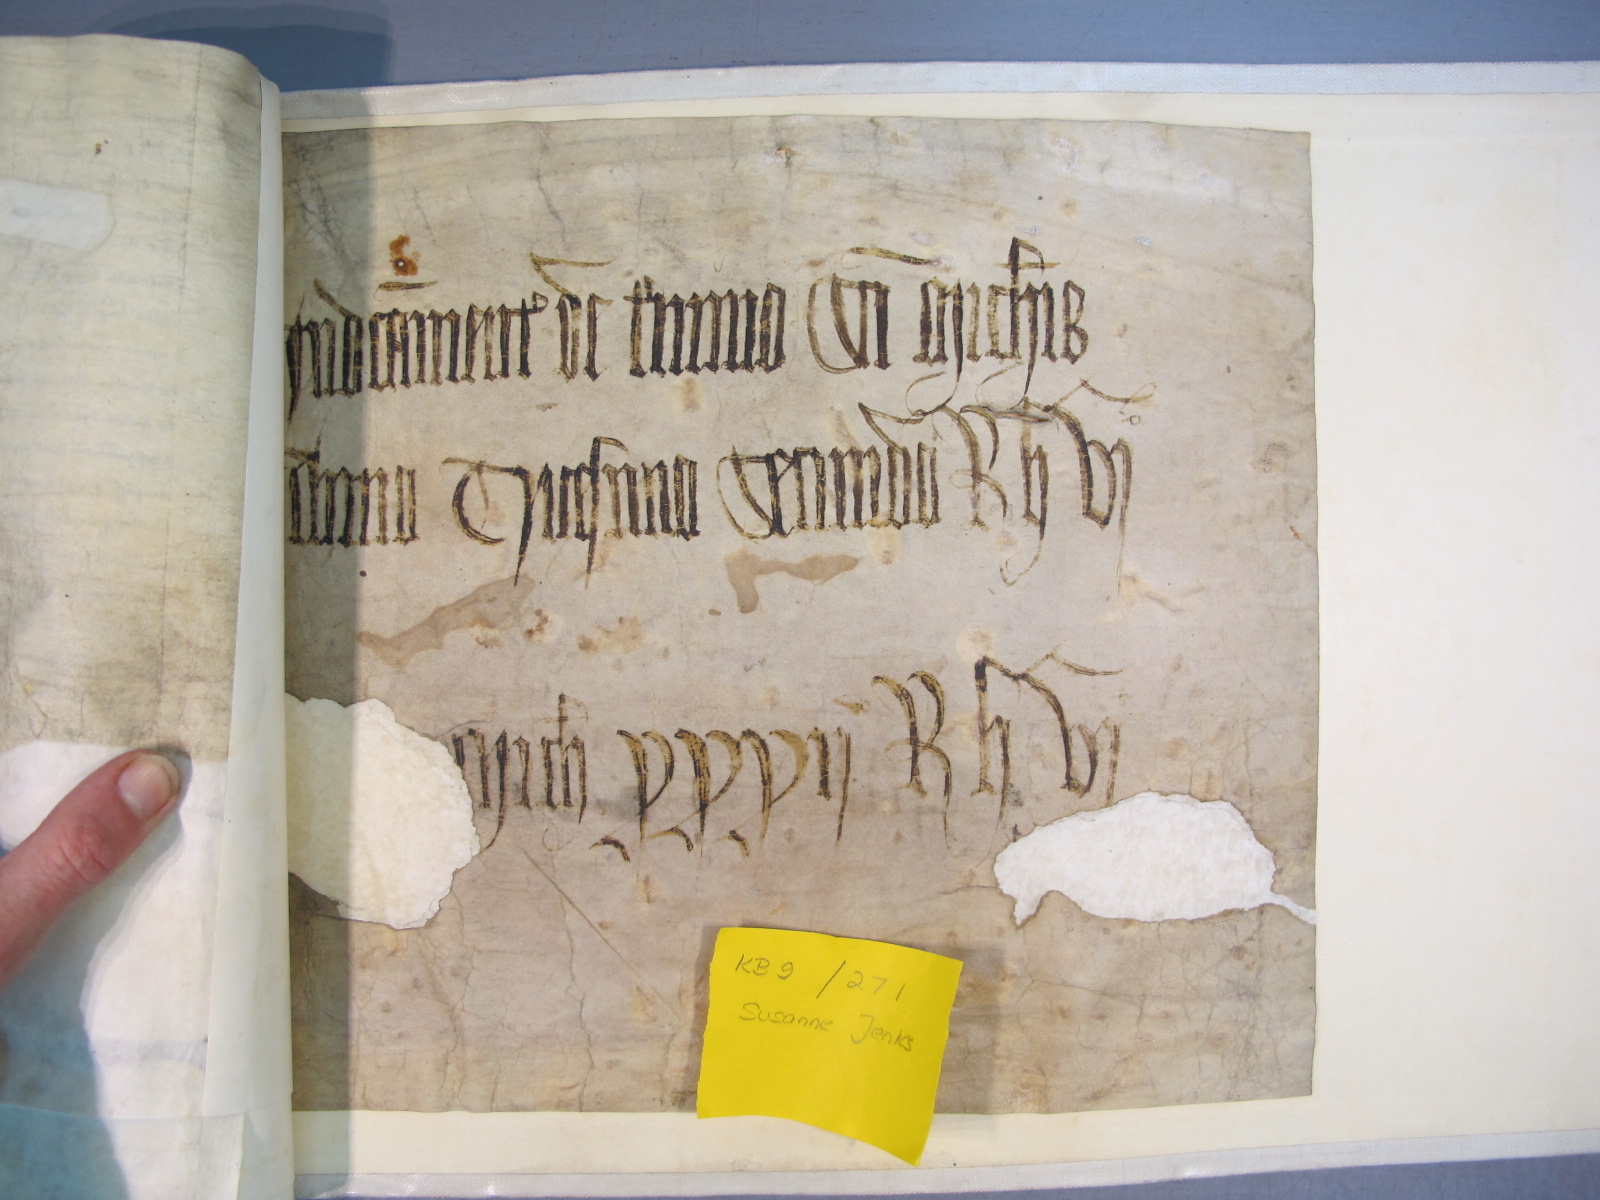 Indictament' de t'mino Sci Michis
Anno Tricesimo Secundo R h vj
Mich xxxij R h vj
KB 9 / 271
Susanne Jenks